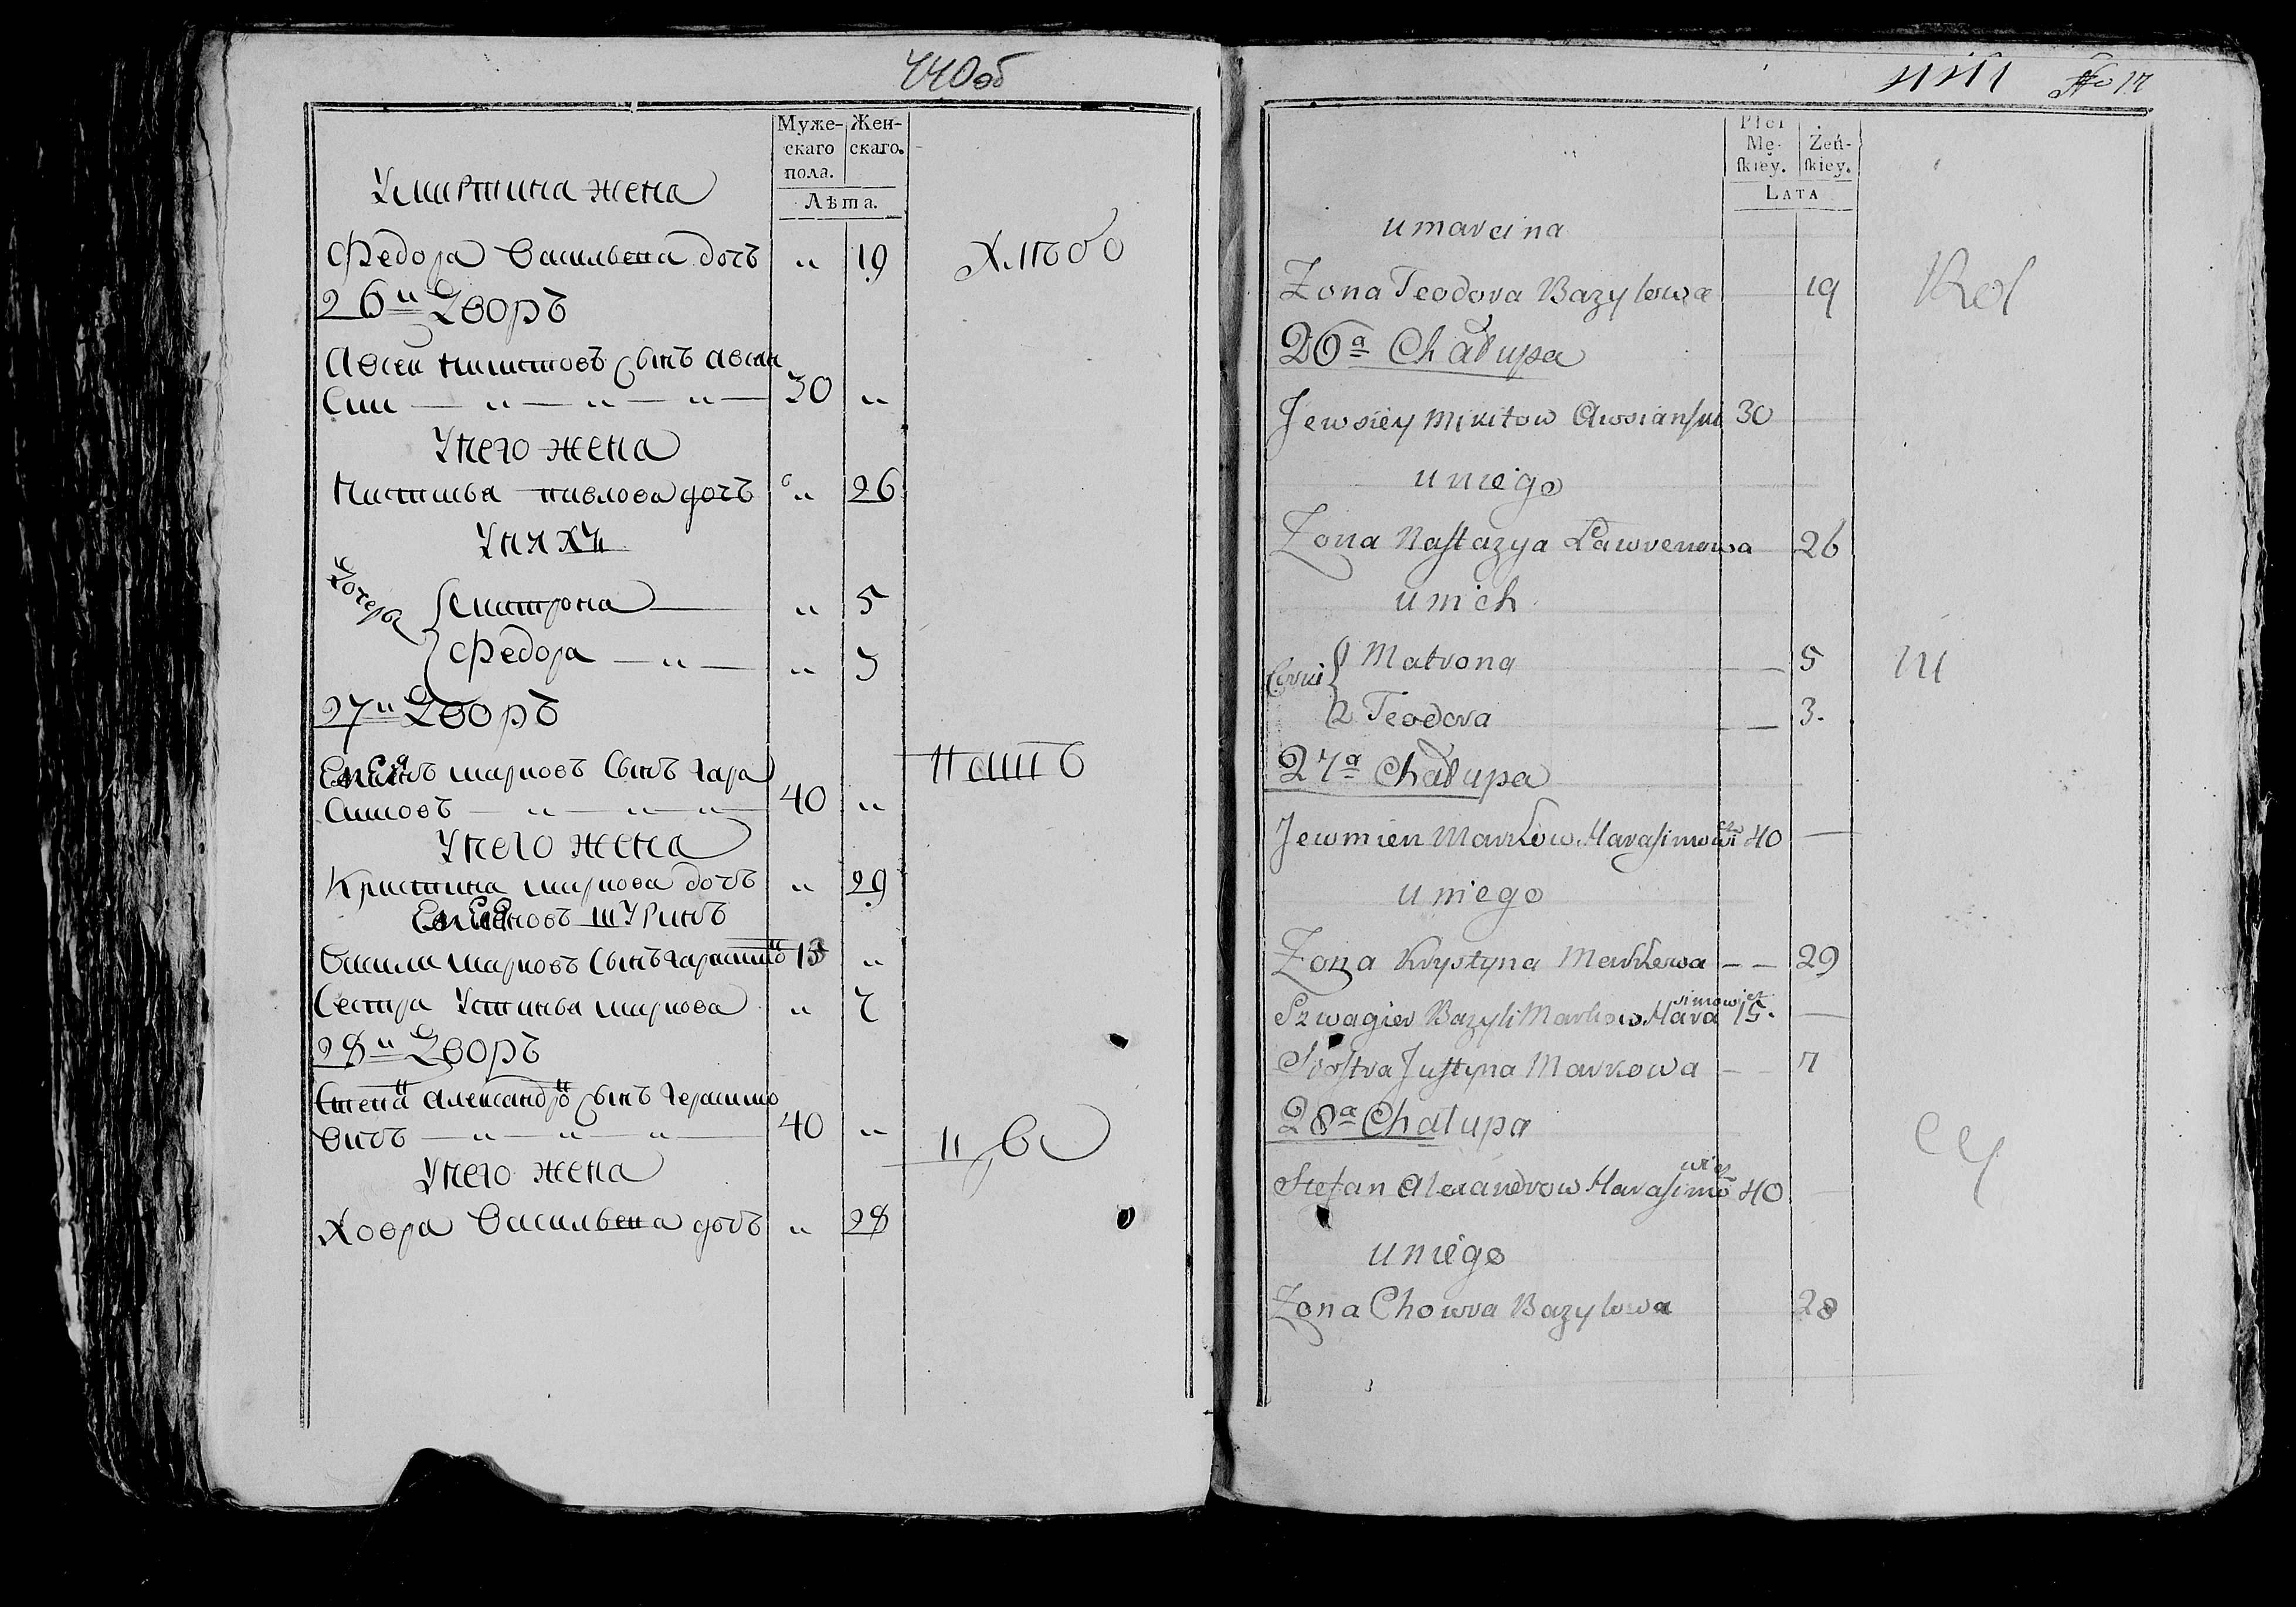 440об
Муже-
скаго
пола.
Жен-
скаго.
Лѣта.
Умартина жена
Федора Васильева дочъ „ 19
26й Дворъ
Авсеи никитовъ сынъ авсян
ски — „ — „ — „ — 30 „
Унего жена
Настасья павлова дочъ „ 26
Унихъ
Дочеры
матрона — „ 5
Федора — „ — „ 3
27й Дворъ
марковъ сынъ гара
симовъ — „ — „ — „ — 40 „
Унего жена
Кристина маркова дочъ „ 29
шуринъ
Васили марковъ сынъ 15 „
Сестра Устинья маркова „ 7
28й Дворъ
Степан александро сынъ герасимо
вичъ — „ — „ — „ — 40 „
Унего жена
Ховра Васильева дочъ „ 28
No 17
Płci
Mę-
skiey.
Żeń-
skiey.
LATA
u marcina
Zona Teodora Bazylowa 19
26a Chałupa
Jewsiéy Mikitow Awsianski 30
u niego
Zona Nastazya Lawrenowa 26
u nich
Corki
1 Matrona 5
2 Teodora 3.
27a Chałupa
Jewmien Markow Harasimowicz 40
u niego
Zona Krystyna Markowa 29
Szwagier Bazyli Markow Harasimowicz 15.
Siostra Justyna Markowa 7
28a Chałupa
Stefan Alexandrow Harasimowicz 40
u niego
Zona Chowra Bazylowa 28